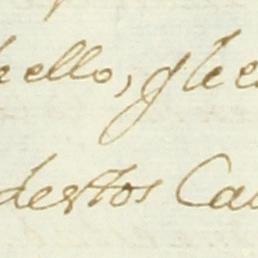 ello, y le
destos Ca